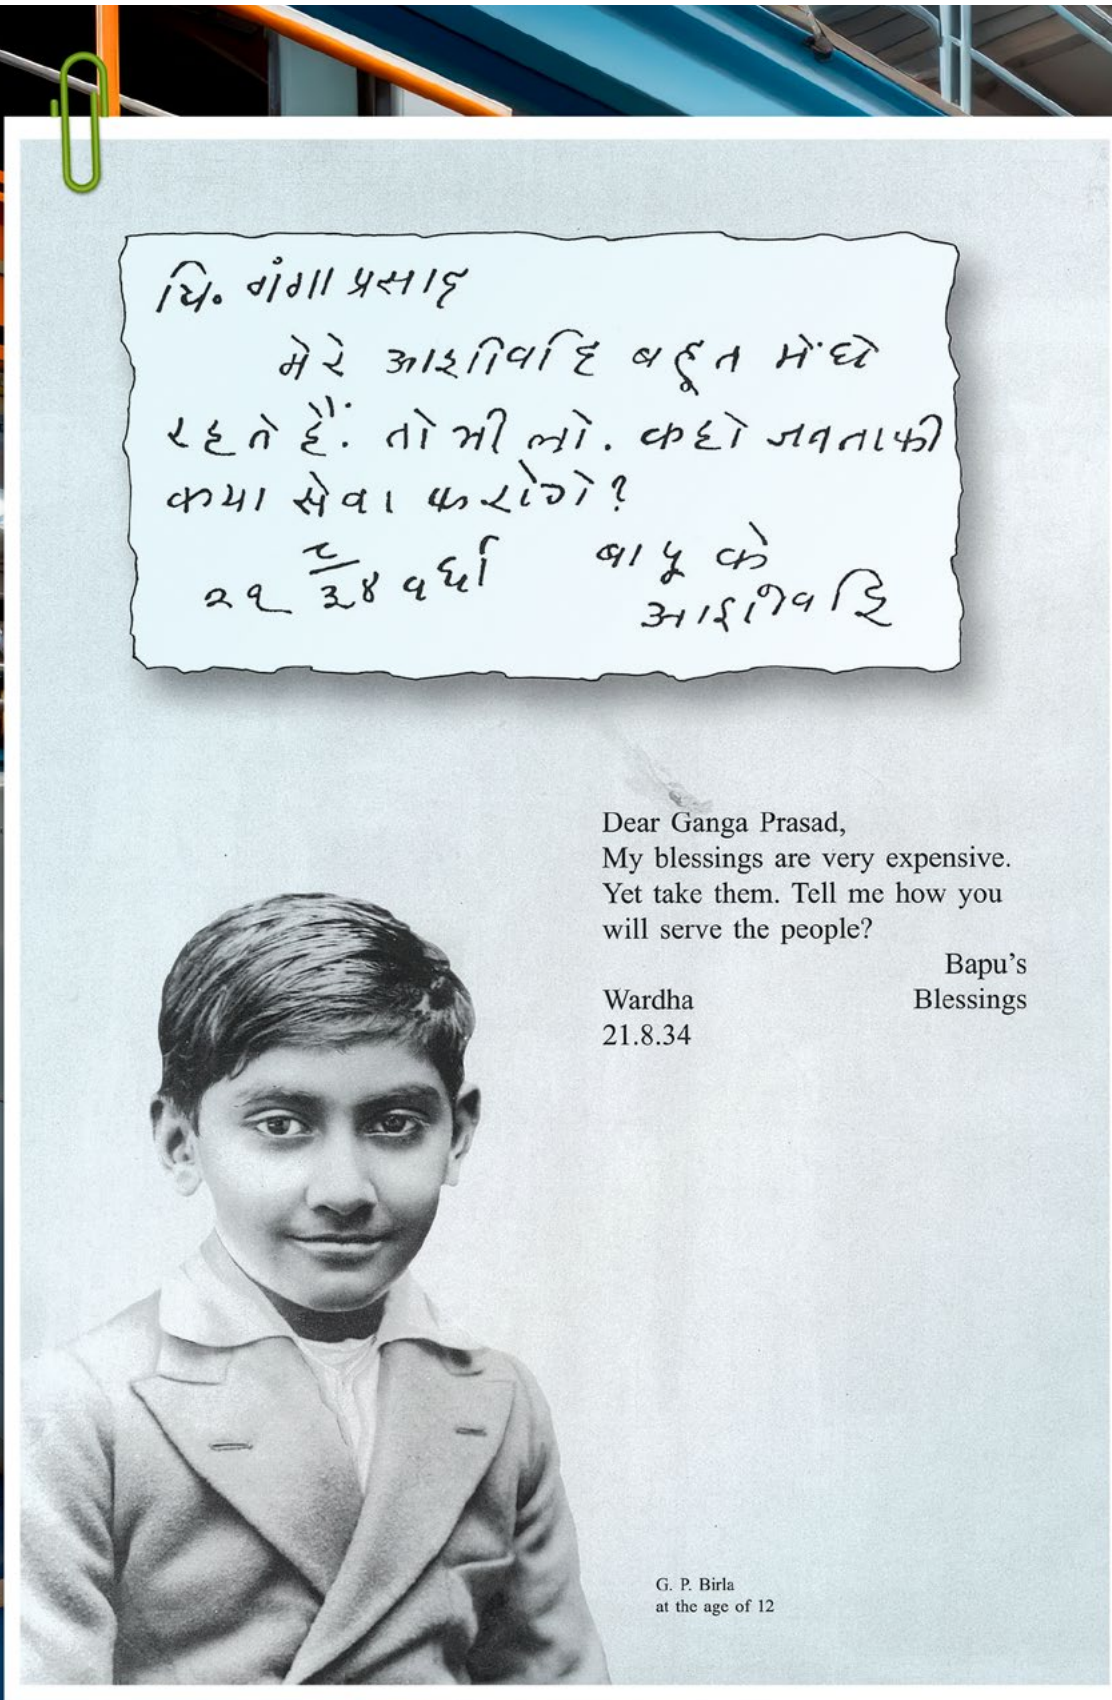 चि. गंगा प्रसाद
मेरे आशीर्वाद बहूत मेंघे
रहते हैं. तो भी लो. कहो जनताकी
क्या सेवा करोगे?
२१ ८/३४ वर्धा
बापु के
आशीर्वाद
Dear Ganga Prasad,
My blessings are very expensive.
Yet take them. Tell me how you
will serve the people?
Bapu's
Wardha Blessings
21.8.34
G. P. Birla
at the age of 12